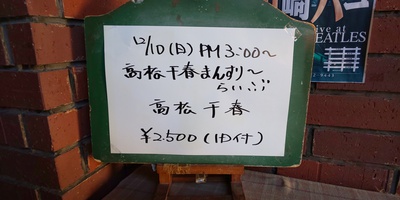 12/10(日) PM 3:00〜
高松千春まんすりー
らいぶ
高松千春
¥2.500(1D付)
at
BEATLES